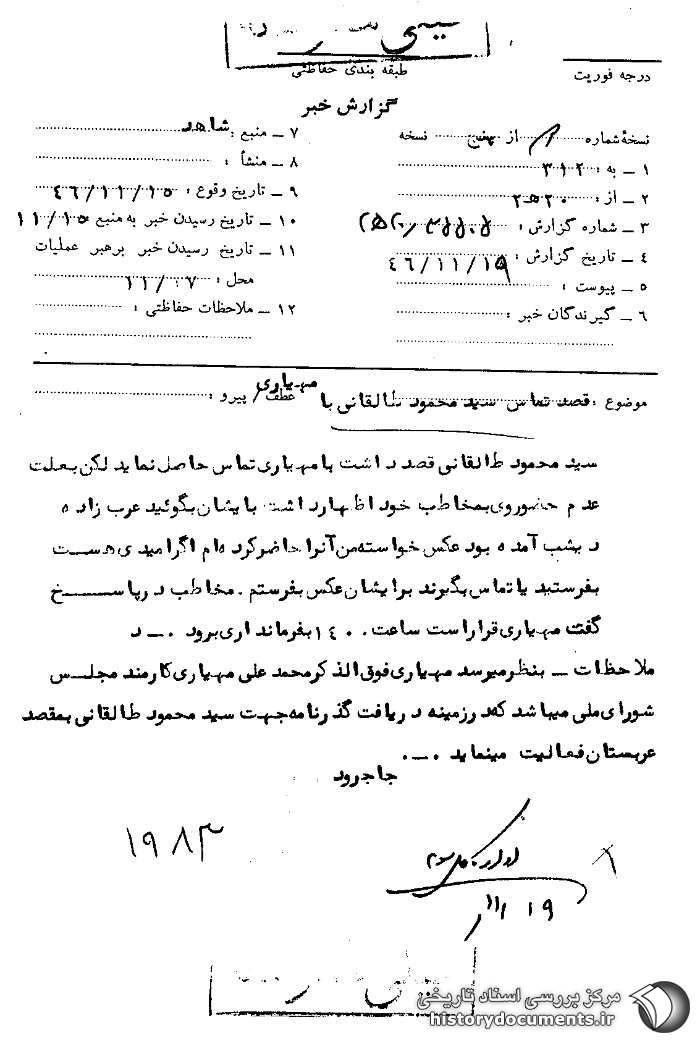 طبقه بندی حفاظتی
درجه فوریت
گزارش خبر
نسخهٔ شماره ۱ از پنج نسخه
۱ ـ به : ۳۱۲
۲ ـ از : ۲۰ ه‍ ۲
۳ ـ شماره گزارش :
۴ ـ تاریخ گزارش : ۴۶/۱۱/۱۵
۵ ـ پیوست :
۶ ـ گیرندگان خبر :
۷ ـ منبع : شاهد
۸ ـ منشأ :
۹ ـ تاریخ وقوع : ۴۶/۱۱/۱۵
۱۰ ـ تاریخ رسیدن خبر به منبع ۱۱/۱۵
۱۱ ـ تاریخ رسیدن خبر برهبر عملیات
محل : ۱۱/۰۷
۱۲ ـ ملاحظات حفاظتی :
موضوع : قصد تماس سید محمود طالقانی با مهیاری
عطف / پیرو :
سید محمود طالقانی قصد داشت با مهیاری تماس حاصل نماید لکن بعلت
عدم حضوروی بمخاطب خود اظهار داشت بایشان بگوئید عرب زاده
دیشب آمده بود عکس خواسته من آنرا حاضر کرده ام اگر امیدی هست
بفرستید یا تماس بگیرند برایشان عکس بفرستم . مخاطب در پاسخ
گفت مهیاری قرار است ساعت ۱۴۰۰ بفرمانداری برود ۰ـ د
ملاحظات ـ بنظر میرسد مهیاری فوق الذکر محمد علی مهیاری کارمند مجلس
شورای ملی میباشد که در زمینه دریافت گذرنامه جهت سید محمود طالقانی بمقصد
عربستان فعالیت مینماید ۰ـ۰
جاجرود
۱۹۸۳
۱۹ /۱۱
مرکز بررسی اسناد تاریخی
historydocuments.ir